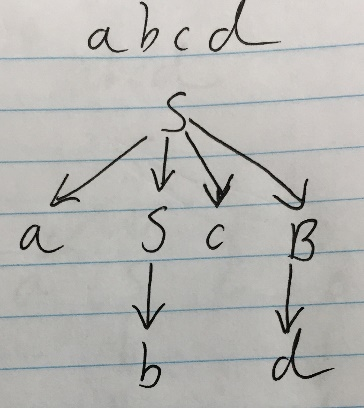 abcd
S
a S c B
b d